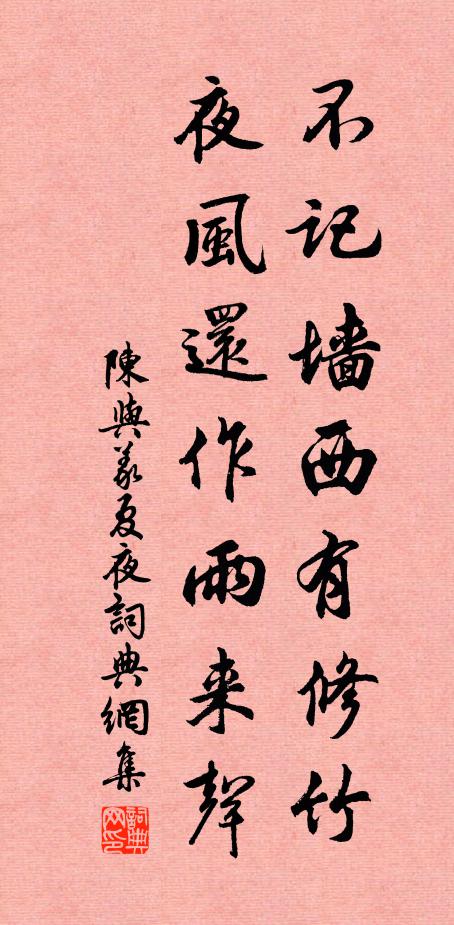 不记墙西有修竹
夜風還作雨来聲
陳與義夏夜詞典網集
詞典网印